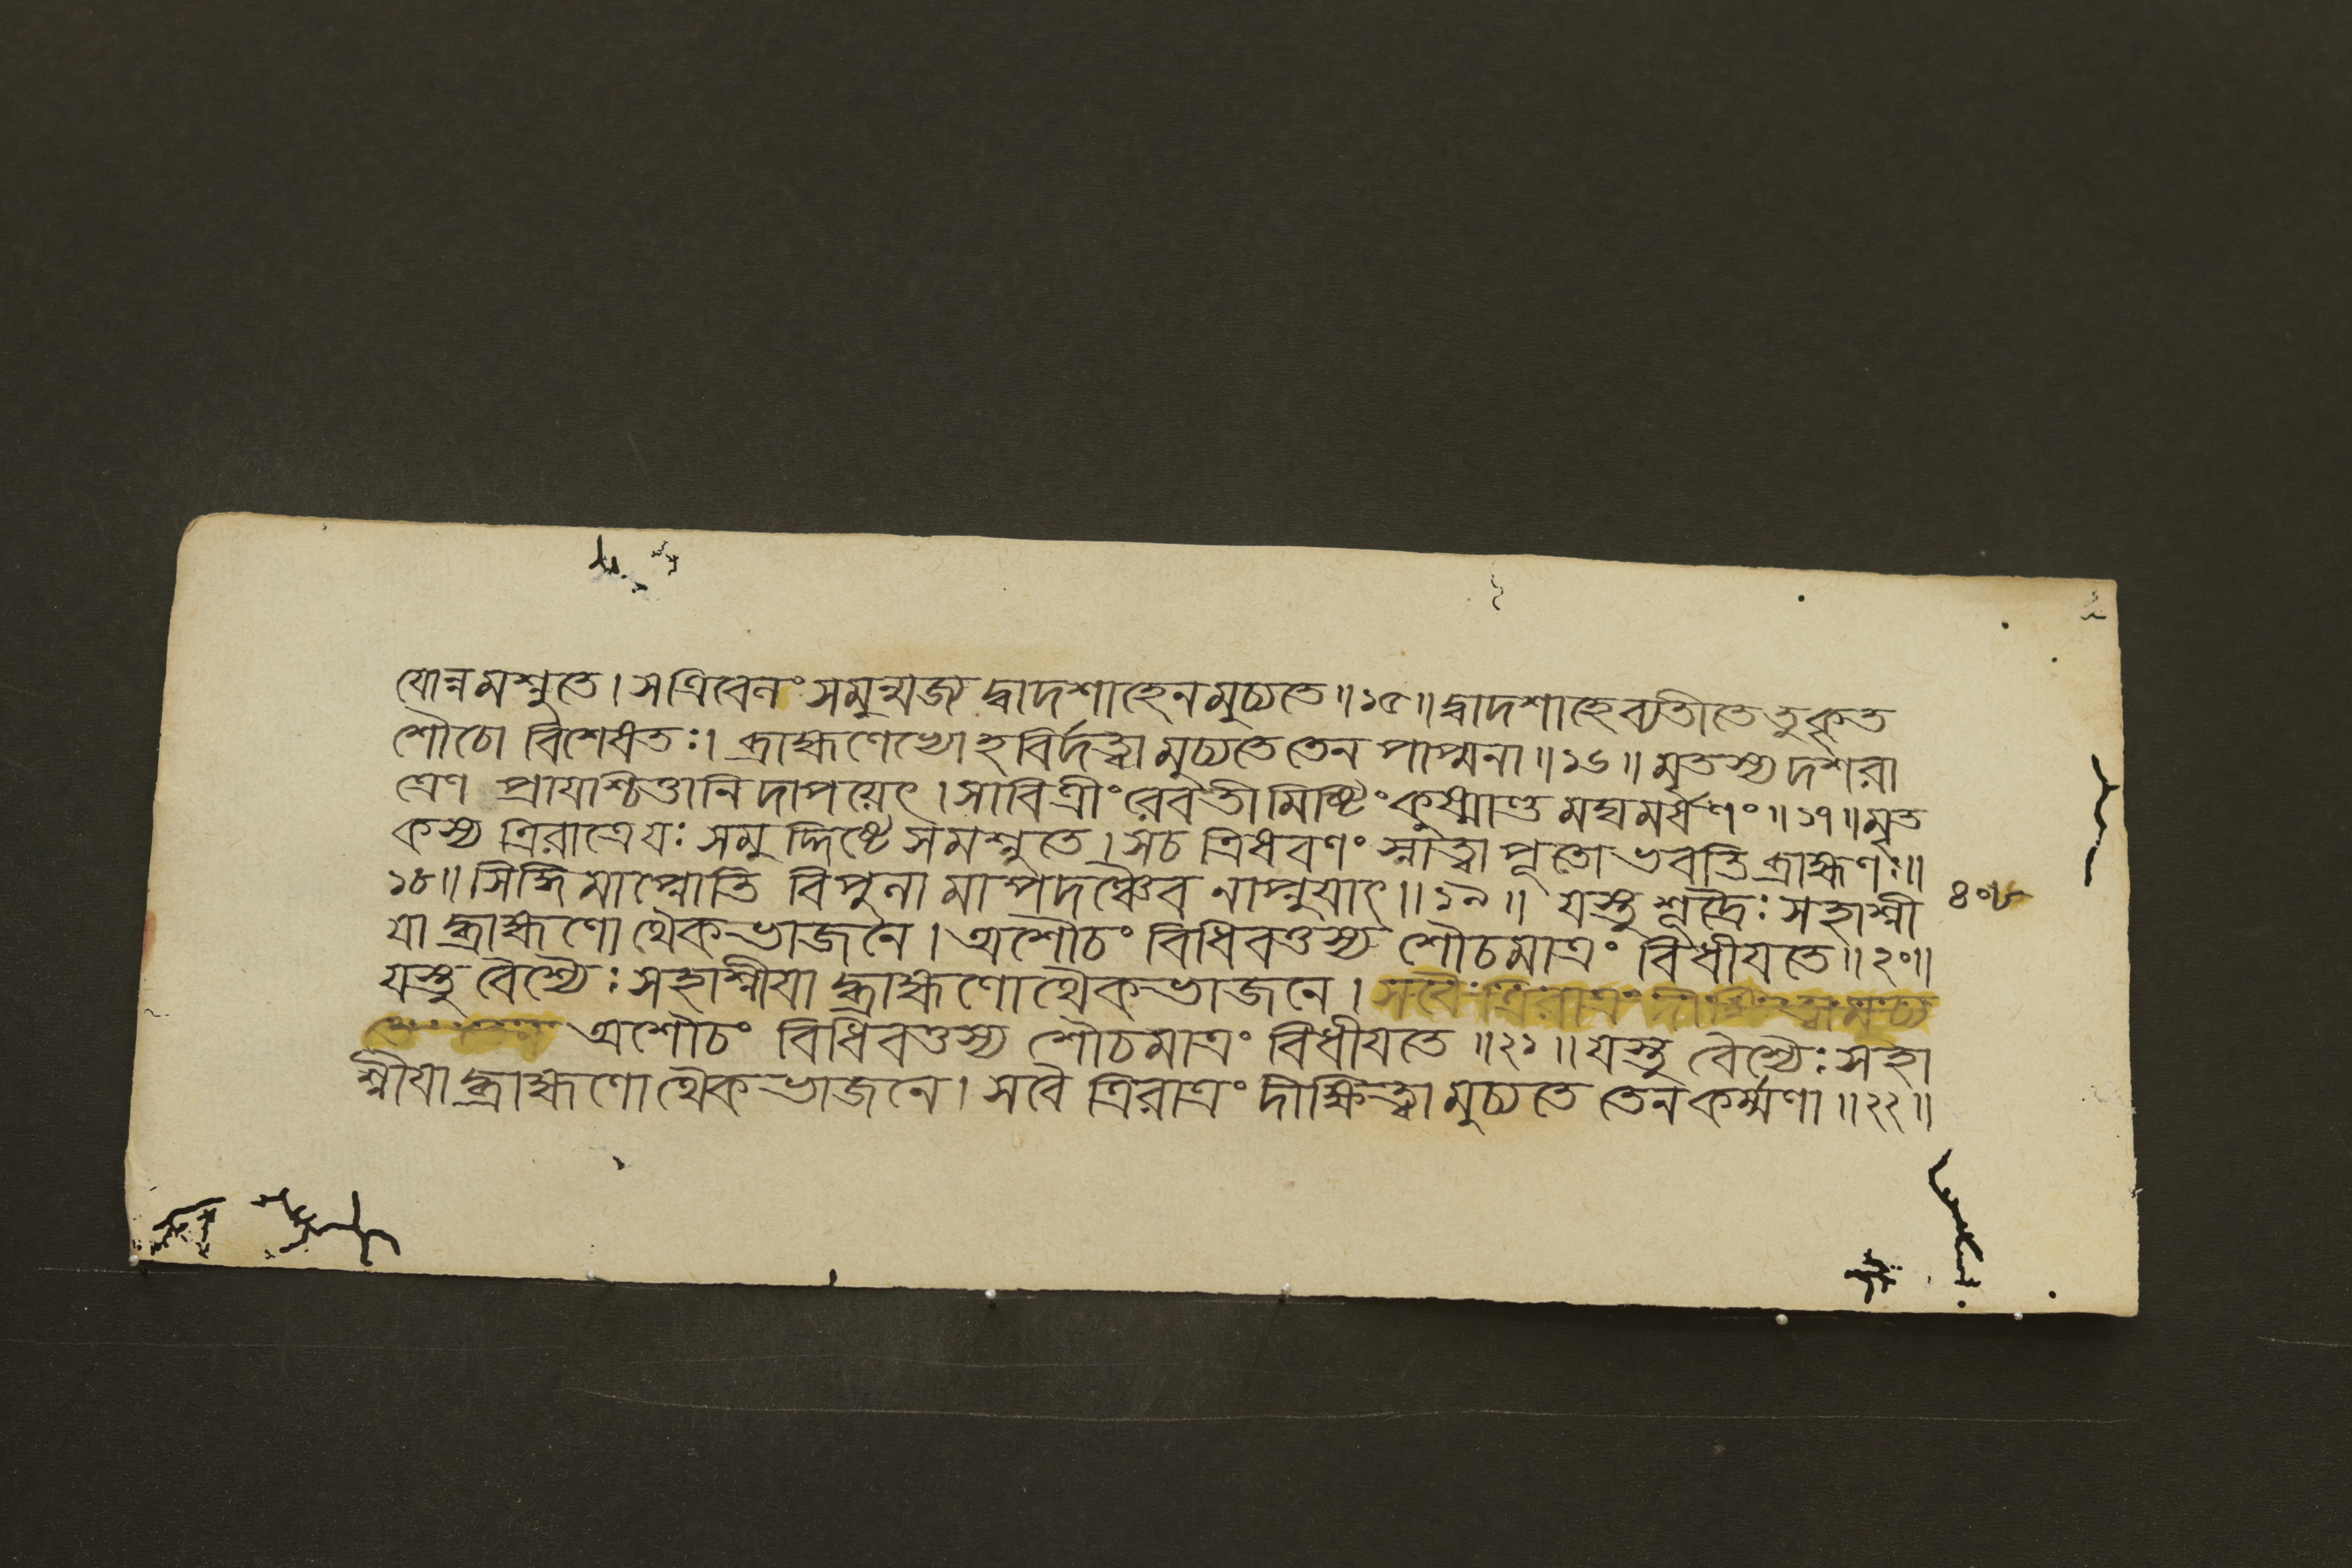 যোন্নমশ্নুতে। সত্রিবেনং সমুন্মজ্য দ্বাদশাহেনমুচ্যতে॥১৫॥দ্বাদশাহেব্যতীতে তুকৃত
শৌচো বিশেষতঃ। ব্রাহ্মণেভ্যো হবির্দত্ত্বামুচ্যতে তেন পাপ্মনা॥১৬॥ মৃতস্য দশরা
ত্রেণ প্রায়শ্চিত্তানি দাপয়েৎ। সাবিত্রীং রেবতীমিষ্টিং কুষ্মাণ্ডমঘমর্ষণং॥১৭॥মৃত
কস্য ত্রিরাত্রে যঃ সমুদ্দিষ্টে সমশ্নুতে। সচ ত্রিষবণং স্নাত্বা পূতো ভবতি ব্রাহ্মণঃ॥
১৮॥ সিদ্ধিমাপ্নোতি বিপুলা মাপদঞ্চৈব নাপ্নুয়াৎ॥১৯॥ যস্তু শূদ্রৈঃ সহাশ্নী
৪০৮
যা দ্ব্রাহ্মণো থৈকভাজনে। অশৌচং বিধিবত্তস্য শৌচমাত্রং বিধীয়তে॥২০॥
যস্তু বৈশ্যৈঃ সহাশ্নীয়া দ্ব্রাহ্মণো থৈকভাজনে। সবৈ ত্রিরাত্রং দীক্ষিত্বা মুচ্য
অশৌচং বিধিবত্তস্য শৌচমাত্রং বিধীয়তে॥২১॥যস্তু বৈশ্যৈঃ সহা
শ্নীয়া দ্ব্রাহ্মণো থৈকভাজনে। সবৈ ত্রিরাত্রং দীক্ষিত্বা মুচ্যতে তেনকর্ম্মণা॥২২॥